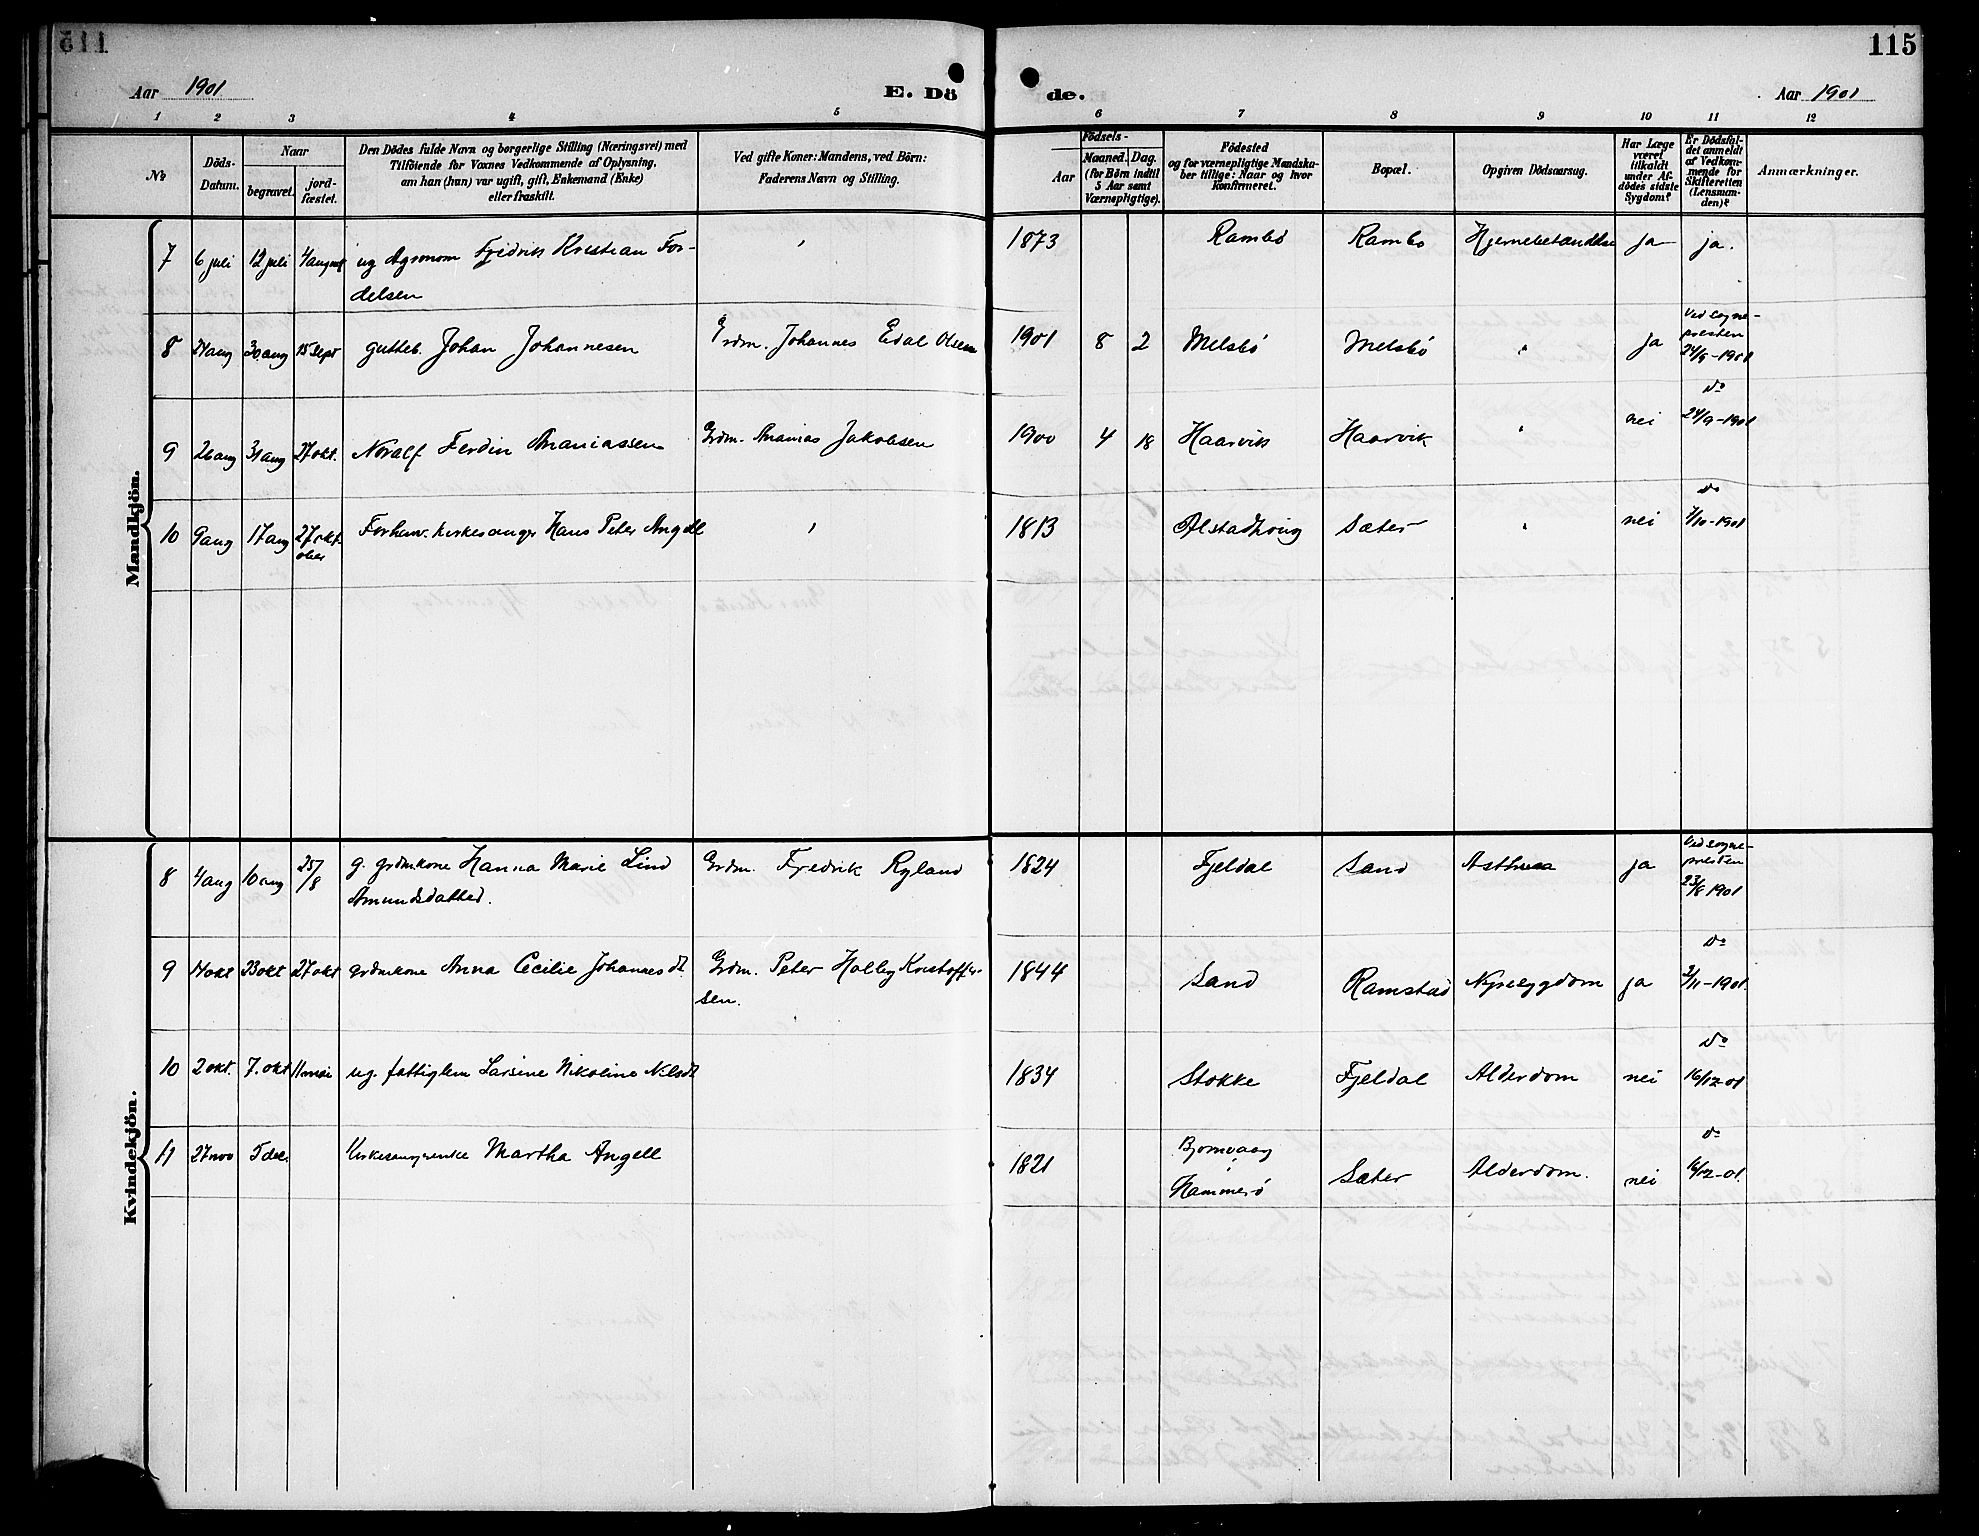 115
Aar 1901
E. Döde.
Aar 1901
1 2 3 4 5 6 7 8 9 10 11 12
No
Döds-Datum.
Naar
begravet.
jord-fæstet.
Den Dödes fulde Navn og borgerlige Stilling (Næringsvei) med
Tilföiende for Voxnes Vedkommende af Oplysning,
om han (hun) var ugift, gift, Enkemand (Enke)
eller fraskilt.
Ved gifte Koner: Mandens, ved Börn:
Faderens Navn og Stilling.
Födsels-
Aar
Maaned. Dag.
(for Börn indtil
5 Aar samt
Værnepligtige).
Födested
og for værnepligtige Mandska-
ber tillige: Naar og hvor
Konfirmeret.
Bopæl.
Opgiven Dödsaarsag.
Har Læge
været
tilkaldt
under Af-
dödes sidste
Sygdom?
Er Dödsfal-
det anmeldt
af Vedkom-
mende for
Skifteretten
(Lensman-
den)?
Anmærkninger.
Mandkjön.
7 6 juli 12 juli 4 august ug Agronom Fredrik Kristian For- 1873 Rambö Rambo Hjernebetændelse ja ja.
delsen
8 24 aug 30 aug 15 sept gutteb. Johan Johannesen Grdm. Johannes Edal Olsen 1901 8 2 Melsbö Melsbö " ja Ved sogne-
presten
24/9-1901
9 26 aug 31 aug 27 okt. Noralf Ferdin Ananiassen Grdm. Ananias Jakobsen 1900 4 18 Haarvik Haarvik " nei Do
24/9-1901
10 9 aug 17 aug 27 okt- Forhenv. kirkesanger Hans Peter Angell 1813 Alstadhoug Sæter " nei Do
ober
/10-1901
Kvindekjön.
8 4 aug 10 aug 25/8 g. grdmkone Hanna Marie Lind Grdm. Fredrik Ryland 1824 Fjeldal Sand Asthma ja Ved sogne-
Amundsdatted. presten
23/8 1901
9 14 okt 23 okt 27 okt grdmkone Anna Cecilie Johannesdt. Grdm. Peter Holley Kristoffer- 1844 Sand Ramstad Nyresygdom ja Do
sen. 2/11-1901.
10 2 okt. 7. okt 11 mai ug. fattiglem Larsine Nikoline Nilsdt 1834 Stokke Fjeldal Alderdom nei Do
16/12-01
11 27 nov 5 dec. Kirkesangerenke Martha Angell 1821 Bjornvaag Sæter Alderdom. nei Do
Hammerö 16/12-01.